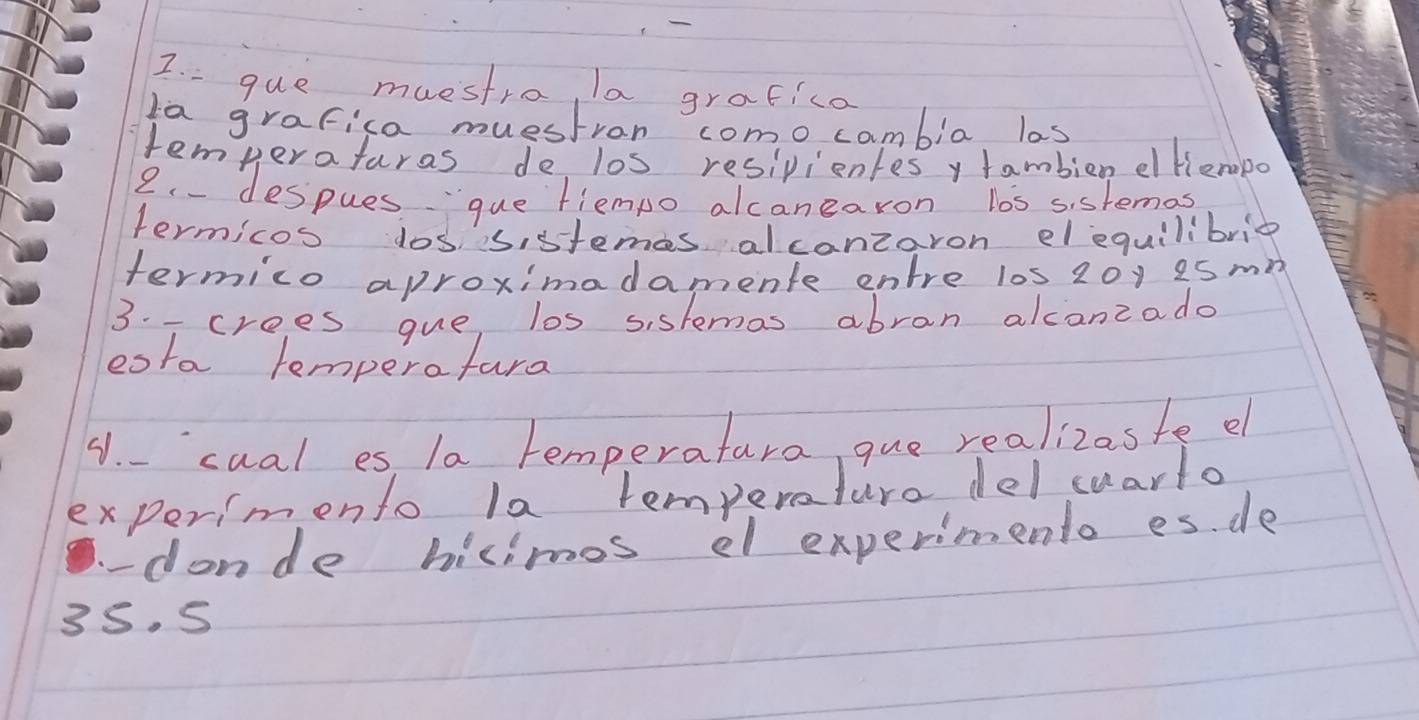 1.- que muestra la grafica
la grafica muestran como cambia las
temperaturas de los resipientes y tambien el tiempo
2.- despues - que tiempo alcanzaron los sistemas
termicos los sistemas alcanzaron el equilibrio
termico aproximadamente entre los 20 y 25 mn
3.- crees que los sistemas abran alcanzado
esta temperatura
4.- cual es la temperatura que realizaste el
experimento la temperatura del cuarto
.-donde hicimos el experimento es.de
35.5